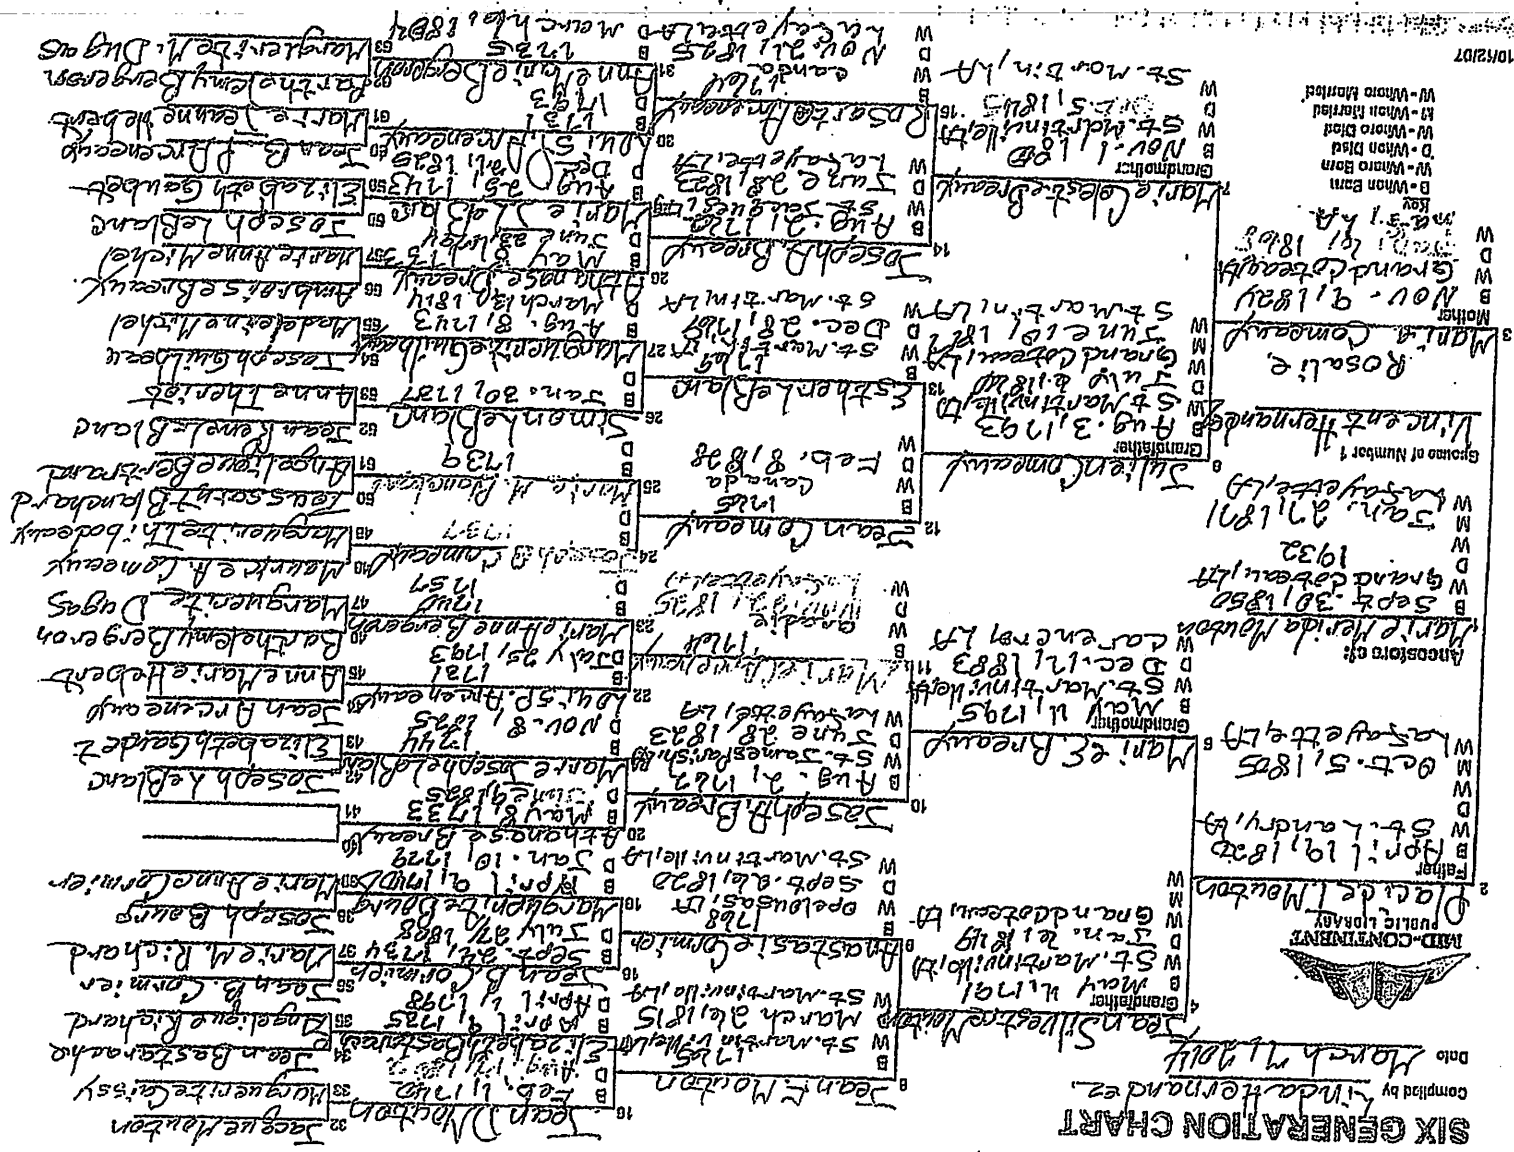 SIX GENERATION CHART
Compiled by Linda Hernandez
Date March 7, 2014
MID-CONTINENT
PUBLIC LIBRARY
2 Placide L Mouton
Father
B April 19, 1820
W St. Landry, LA
D
W
M Oct. 5, 1805
W Lafayette, LA
Ancestors of:
1 Marie Merida Mouton
B Sept. 30, 1850
W Grand Coteau, LA
D 1932
W
M Jan. 27, 1871
W Lafayette, LA
Spouse of Number 1
Vincent Hernandez
Rosalie
3 Maria Comeaux
Mother
B Nov. 9, 1824
W Grand Coteau, LA
D
W
Key
B - When Born
W - Where Born
D - When Died
W - Where Died
M - When Married
W - Where Married
10/12/07
4 Jean Silvestre Mouton
Grandfather
B May 11, 1791
W St. Martinville, LA
D Jan. 2, 1849
W Grand Coteau, LA
M
W
5 Marie E. Breaux
Grandmother
B May 11, 1795
W St. Martinville, LA
D Dec. 17, 1883
W Carencro, LA
6 Julien Comeaux
Grandfather
B Aug. 3, 1793
W St Martinville, LA
D July 2, 1840
W Grand Coteau, LA
M June 19, 1819
W St Martin, LA
7 Marie Celeste Breaux
Grandmother
B Nov. 1, 1800
W St. Martinville, LA
D Oct. 5, 1845
W St. Martin, LA
8 Jean E Mouton
B 1765
W St. Martinville, LA
D March 26, 1815
W St. Martinville, LA
9 Anastasie Cormier
B 1768
W Opelousas, LA
D Sept. 26, 1820
W St. Martinville, LA
10 Joseph A. Breaux
B Aug. 2, 1767
W St. James Parish, LA
D June 28, 1823
W Lafayette, LA
11 Marie
B 1764
W
D
W
12 Jean Comeaux
B 1765
W Canada
D Feb. 8, 1828
W
13 Esther LeBlanc
B 1769
W St. Martin, LA
D Dec. 28, 1787
W St. Martin, LA
14 Joseph A. Breaux
B Aug. 2, 1770
W St. Jacques, LA
D June 28, 1823
W Lafayette, LA
15 Rosarte Arceneaux
B 1764
W Canada
D Nov. 21, 1825
W Lafayette, LA
16 Jean D Mouton
B Feb. 4, 1740
D
Elizabeth Bastarache
B April 9, 1735
D April 4, 1798
18 Jean B. Cormier
B Sept. 24, 1734
D July 27, 1808
19 Marguerite Bourg
B April 9, 1740
D Jan. 10, 1779
20 Athanase Breaux
B May 8, 1733
D
Marie Josephe LeBlanc
B 1744
D Nov. 8, 1825
22 Louis P. Arceneaux
B 1731
D July 25, 1793
23 Marie Anne Bergeron
B 1740
D 1757
24 Joseph O Comeaux
B 1737
D
25 Marie M. Blanchard
B 1739
D
26 Simon LeBlanc
B Jan. 30, 1737
D
27 Marguerite Guilbeau
B Aug. 8, 1743
D March 13, 1814
Athanase Breaux
B May 8, 1733
D
Marie J. LeBlanc
B Aug. 25, 1743
D
Louis P. Arceneaux
B 1731
D 1793
31 Anne Marie Bergeron
B 1735
D March 16, 1804
32 Jacque Mouton
33 Marguerite Caissy
34 Jean Bastarache
35 Angelique Richard
Jean B. Cormier
37 Marie M. Richard
38 Joseph Bourg
Marie Anne Cormier
41
Joseph LeBlanc
43 Elizabeth Gaudet
Jean Arceneaux
45 Anne Marie Hebert
Barthelemy Bergeron
47 Marguerite Dugas
Maurice A. Comeaux
49 Marguerite Thibodeaux
50 Toussaint Blanchard
51 Angelique Bertrand
52 Jean Rene LeBlanc
53 Anne Theriot
54 Joseph Guilbeau
55 Madeleine Michel
56 Ambroise Breaux
57 Marie Anne Michel
Joseph LeBlanc
Elizabeth Gaudet
60 Jean B. P. Arceneaux
61 Marie Jeanne Hebert
62 Barthelemy Bergeron
63 Marguerite M. Dugas